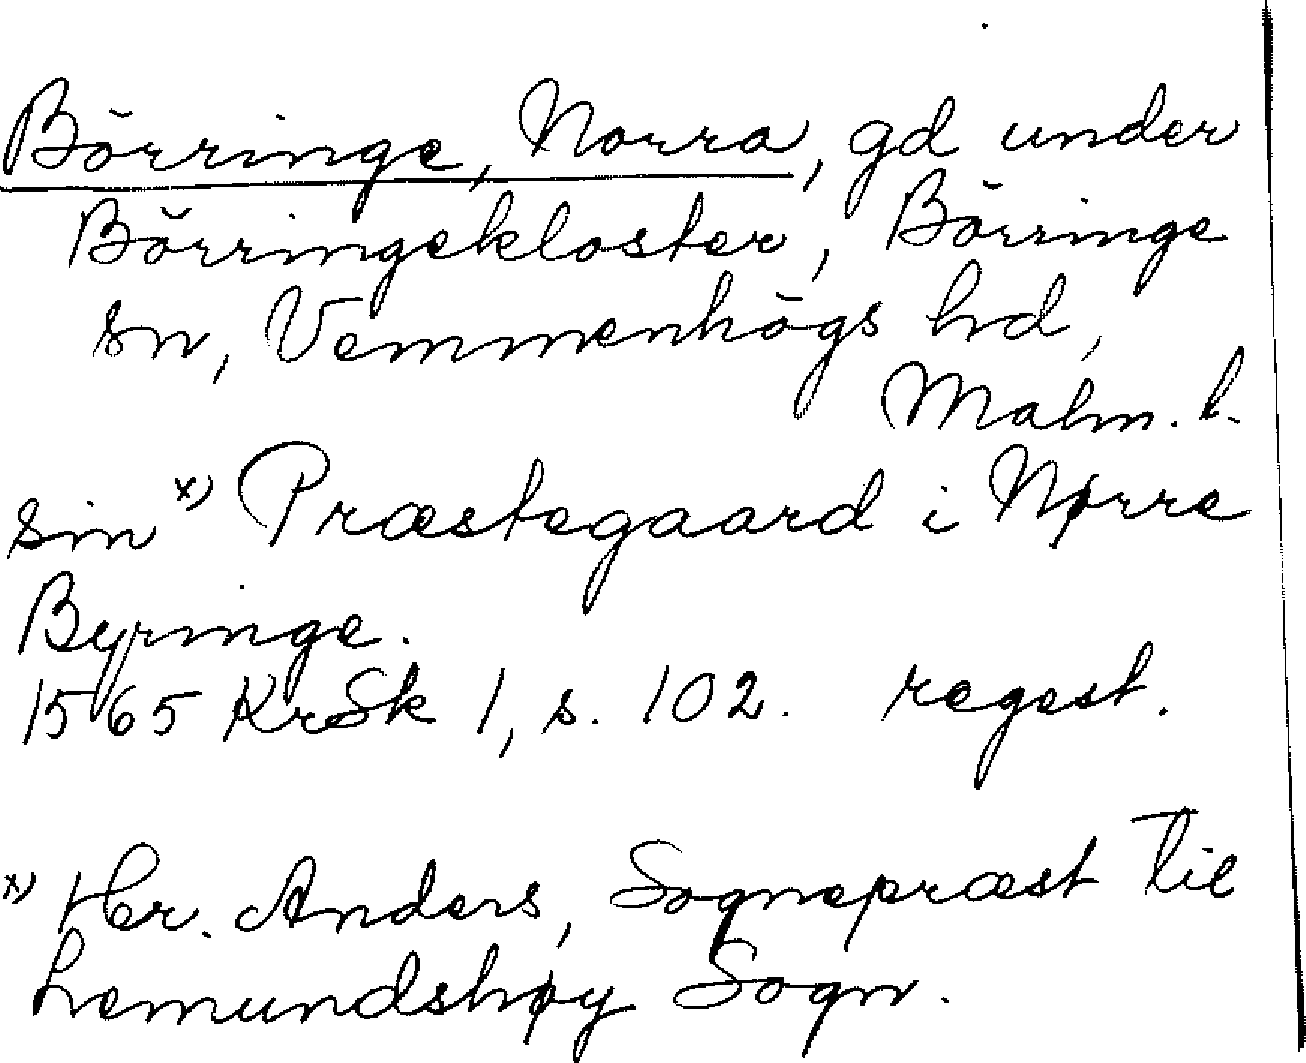 Börringe, Norra, gd under
Börringekloster, Börringe
sn, Vemmenhögs hd,
Malm. l.
sin x) Præstegaard i Nørre
Byringe.
1565 KrSk 1, s. 102. regest.
x) Hr. Anders, Sognepræst til
Lemundshøy Sogn.